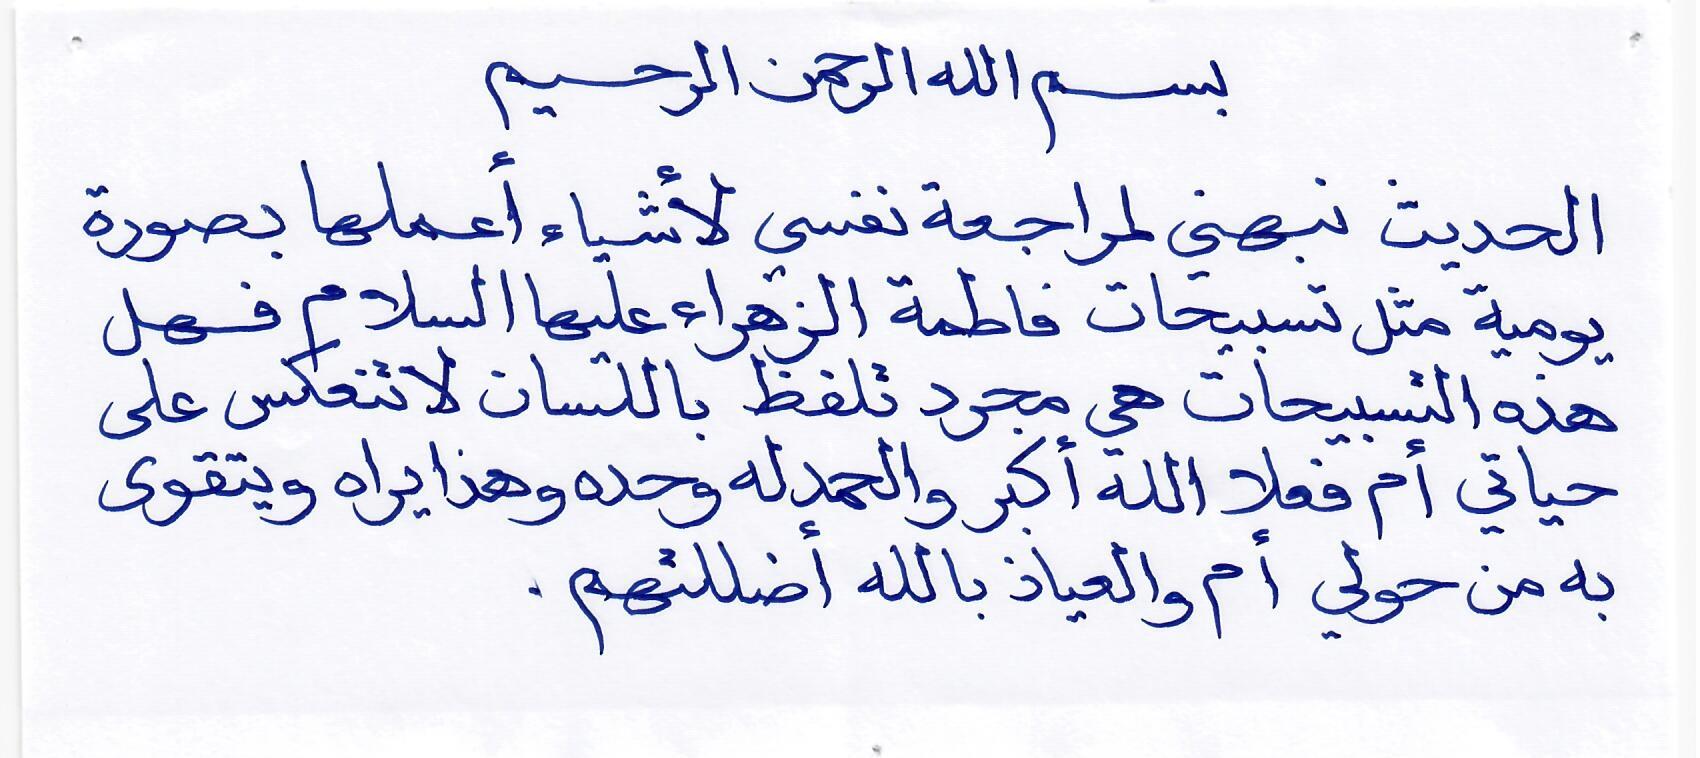 بسم الله الرحمن الرحيم
الحديث نبهني لمراجعة نفسي لأشياء أعملها بصورة
يومية مثل تسبيحات فاطمة الزهراء عليها السلام فهل
هذه التسبيحات هي مجرد تلفظ باللسان لا تنعكس على
حياتي أم فعلا الله أكبر والحمد له وحده وهذا يراه ويتقوى
به من حولي أم والعياذ بالله أضللتهم .